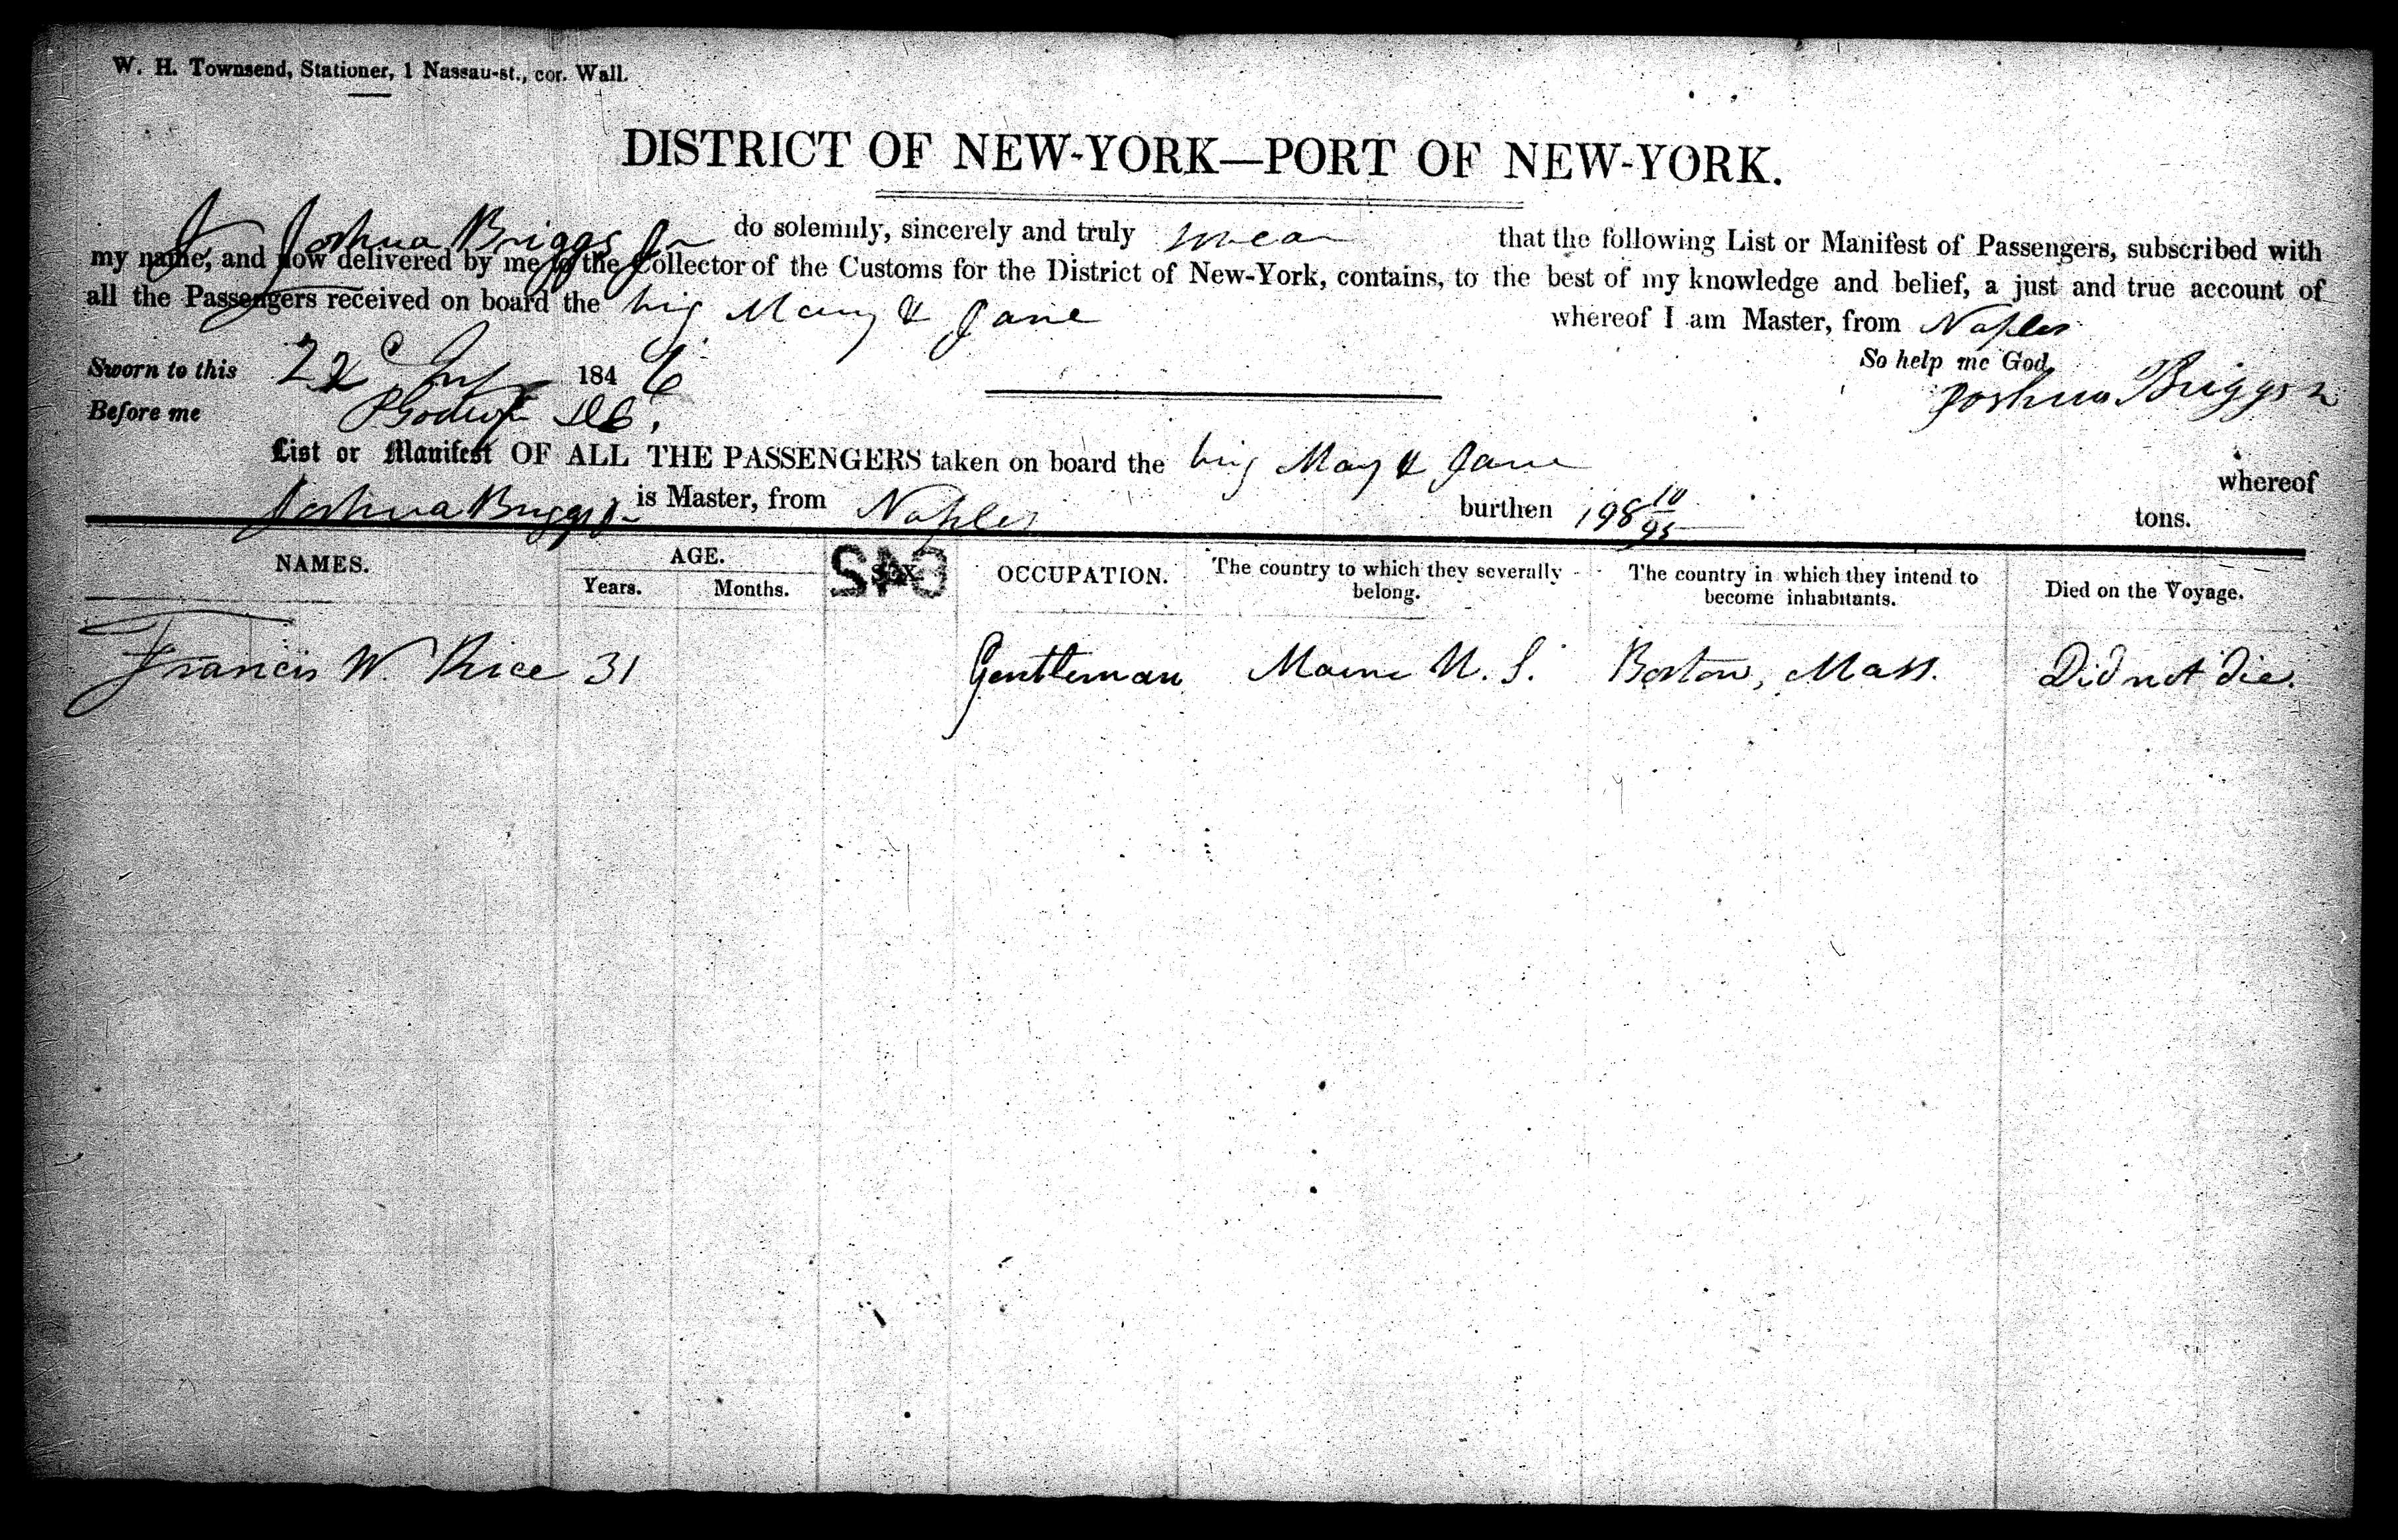 W. H. Townsend, Stationer, 1 Nassau-st., cor. Wall.
DISTRICT OF NEW-YORK—PORT OF NEW-YORK.
I Joshua Briggs Jr do solemnly, sincerely and truly swear that the following List or Manifest of Passengers, subscribed with
my name, and now delivered by me to the Collector of the Customs for the District of New-York, contains, to the best of my knowledge and belief, a just and true account of
all the Passengers received on board the brig Mary & Jane whereof I am Master, from Naples
So help me God.
Sworn to this 22d 1846
Joshua Briggs Jr
Before me
List or Manifest OF ALL THE PASSENGERS taken on board the brig Mary & Jane whereof
Joshua Briggs Jr is Master, from Naples burthen 198 10/95 tons.
NAMES. AGE. SEX OCCUPATION. The country to which they severally belong. The country in which they intend to become inhabitants. Died on the Voyage.
Years. Months.
Francis W. Rice 31 Gentleman Maine U. S. Boston, Mass. Did not die.